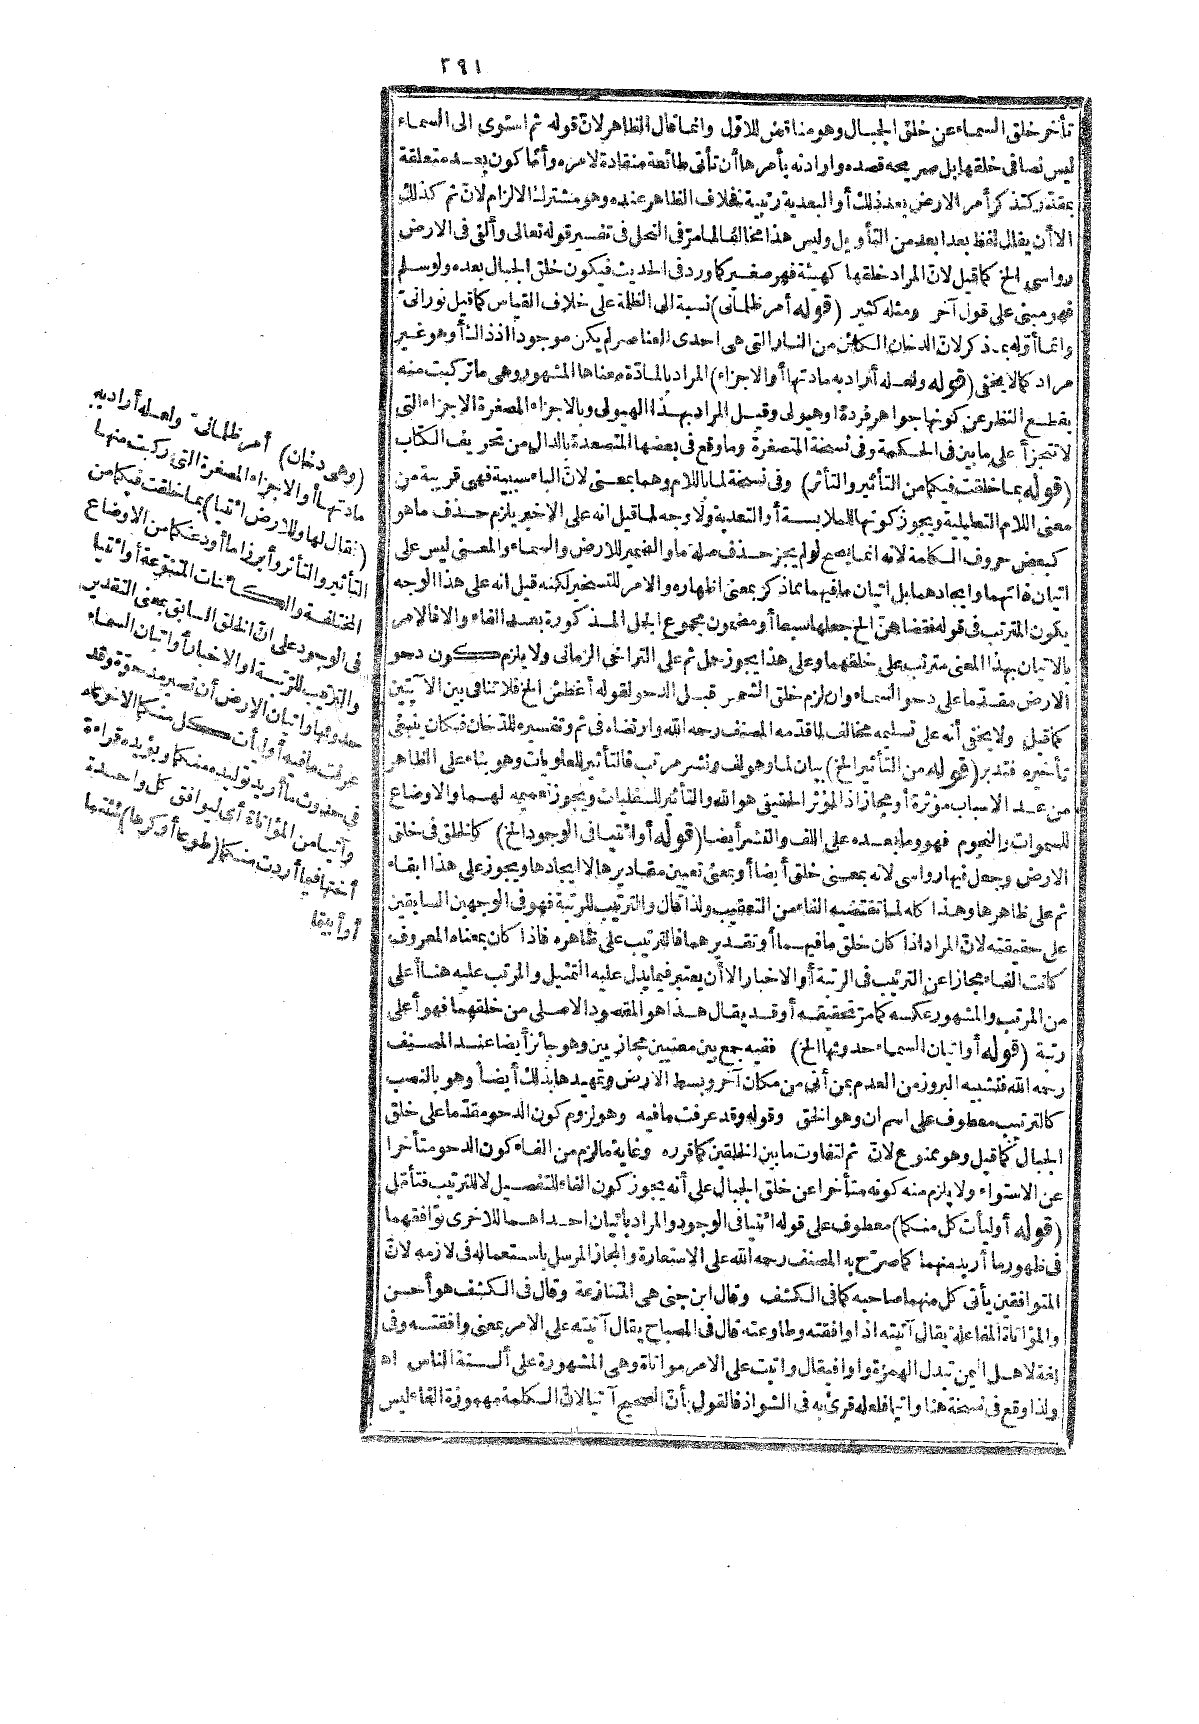 ٣٩١
تأخر خلق السماء عن خلق الجبال وهو مناقض للاول وانما قال الظاهر لانّ قوله ثم استوى الى السماء
ليس نصا فى خلقها بل صريحه قصده وارادته بأمرها أن تأتى طائعة منقادة لامره وأمّا كون بعد متعلقة
بمقدّر كتذكر أمر الارض بعد ذلك أو البعدية رتبية فخلاف الظاهر عنده وهو مشترك الالزام لانّ ثم كذلك
الا أن يقال لفظ بعد ابعد من التأويل وليس هذا مخالفا لما مرّ فى النحل فى تفسير قوله تعالى وألقى فى الارض
رواسى الخ كما قيل لانّ المراد خلقها كهيئة فهر صغير كما ورد فى الحديث فيكون خلق الجبال بعده ولو سلم
فهو مبنى على قول آخر ومثله كثير (قوله أمر ظلمانى) نسبة الى الظلمة على خلاف القياس كما قيل نورانىّ
وانما أوّله بمـا ذكر لانّ الدخان الكائن من النار التى هى احدى العناصر لم يكن موجودا اذ ذاك أو هو غير
مراد كما لا يخفى (قوله ولعله أراد به مادتها أو الاجزاء) المراد بالمادّة معناها المشهور وهى ما تركبت منه
بقطع النظر عن كونها جواهر فردة أو هيولى وقيل المراد بهذا الهيولى وبالاجزاء المصغرة الاجزاء التى
لا تتجزأ على ما بين فى الحكمة وفى نسخة المتصغرة وما وقع فى بعضها المتصعدة بالدال من تحريف الكتاب
(قوله بما خلقت فيكما من التأثير والتأثر) وفى نسخة لما باللام وهما بمعنى لانّ الباء سببية فهى قريبة من
معنى اللام التعليلية ويجوز كونها للملابسة أو التعدية ولا وجه لما قيل انه على الاخير يلزم حذف ما هو
كبعض حروف الكلمة لانه انما يصح لو لم يجز حذف صلة ما والضمير للارض والسماء والمعنى ليس على
اتيان ذاتهما وايجادهما بل اتيان ما فيهما مما ذكر بمعنى اظهاره والامر للتسخير لكنه قيل انه على هذا الوجه
يكون المترتب فى قوله فقضاهنّ الخ جعلها سبعا أو مضمون مجموع الجمل المذكورة بعد الفاء والا فالامر
بالاتيان بهذا المعنى مترتب على خلقهما وعلى هذا يجوز حمل ثم على التراخى الزمانى ولا يلزم كون دحو
الارض مقدّما على دحو السماء وان لزم خلق الشمس قبل الدحو لقوله أغطش الخ فلا تنافى بين الآيتين
كما قيل ولا يخفى أنه على تسليمه مخالف لما قدمه المصنف رحمه الله وارتضاه فى ثم وتفسيره للدخان فكان ينبغى
تأخيره فتدبر (قوله من التأثير الخ) بيان لما وهو لف ونشر مرتب فالتأثير للعلويات وهو بناء على الظاهر
من عد الاسباب مؤثرة أو مجاز اذ المؤثر الحقيقى هو الله والتأثير للسفليات ويجوز تعميمه لهما والاوضاع
للسموات والنجوم فهو وما بعده على اللف والنشر أيضا (قوله أو ائتيا فى الوجود الخ) كالخلق فى خلق
الارض وجعل فيها رواسى لانه بمعنى خلق أيضا أو بمعنى تعيين مقاديرها لا ايجادها ويجوز على هذا ابقاء
ثم على ظاهرها وهذا كله لما تقتضيه الفاء من التعقيب ولذا قال والترتيب للرتبة فهو فى الوجهين السابقين
على حقيقته لانّ المراد اذا كان خلق ما فيهما أو تقديرهما فالترتيب على ظاهره فاذا كان بمعناه المعروف
كانت الفاء مجازا عن الترتيب فى الرتبة أو الاخبار الا أن يعتبر فيما يدل عليه التمثيل والمرتب عليه هنا أعلى
من المرتب والمشهور عكسه كما مرّ تحقيقه أو قد يقال هذا هو المقصود الاصلى من خلقهما فهو أعلى
رتبة (قوله أو اتيان السماء حدوثها الخ) ففيه جمع بين معنيين مجازيين وهو جائز أيضا عند المصنف
رحمه الله فتشبيه البروز من العدم بمن أتى من مكان آخر وبسط الارض وتمهيدها بذلك أيضا وهو بالنصب
كالترتيب معطوف على اسم ان وهو الخلق وقوله وقد عرفت ما فيه وهو لزوم كون الدحو مقدّما على خلق
الجبال كما قيل وهو ممنوع لانّ ثم لتفاوت ما بين الخلقين كما قرره وغاية ما لزم من الفاء كون الدحو متأخرا
عن الاستواء ولا يلزم منه كونه متأخرا عن خلق الجبال على أنه يجوز كون الفاء للتفصيل لا للترتيب فتأمّل
(قوله أو ليأت كل منكما) معطوف على قوله ائتيا فى الوجود والمراد باتيان احداهما للاخرى توافقهما
فى ظهور ما أريد منهما كما صرّح به المصنف رحمه الله على الاستعارة والمجاز المرسل باستعماله فى لازمه لانّ
المتوافقين يأتى كل منهما صاحبه كما فى الكشف وقال ابن جنى هى المتنازعة وقال فى الكشف هو أحسن
والمؤاتاة المفاعلة يقال آتيته اذا وافقته وطاوعته قال فى المصباح يقال آتيته على الامر بمعنى وافقته وفى
لغة لاهل اليمن تبدل الهمزة واوا فيقال واتيت على الامر مواتاة وهى المشهورة على ألسنة الناس اه
ولذا وقع فى نسخة هنا واتيا فلعله قرئ به فى الشواذ فالقول بأنّ الصحيح آتيا لانّ الكلمة مهموزة الفاء ليس
(وهى دخان) أمر ظلمانىّ ولعله أراد به
مادتها أو الاجزاء المصغرة التى ركبت منها
(فقال لها وللارض ائتيا) بما خلقت فيكما من
التأثير والتأثر وأبرزا ما أودعتكما من الاوضاع
المختلفة والكائنات المتنوّعة أو ائتيا
فى الوجود على انّ الخلق السابق بمعنى التقدير
والترتيب للرتبة او الاخبار أو اتيان السماء
حدوثها واتيان الارض أن تصير مدحوّة وقد
عرفت ما فيه أو ليأت كل منكما الاخرى
فى حدوث ما أريد توليده منكما ويؤيده قراءة
وآتيا من المؤاتاة أى ليوافق كل واحدة
أختها فيما أردت منكما (طوعا أو كرها) شئتما
أو أبيتما